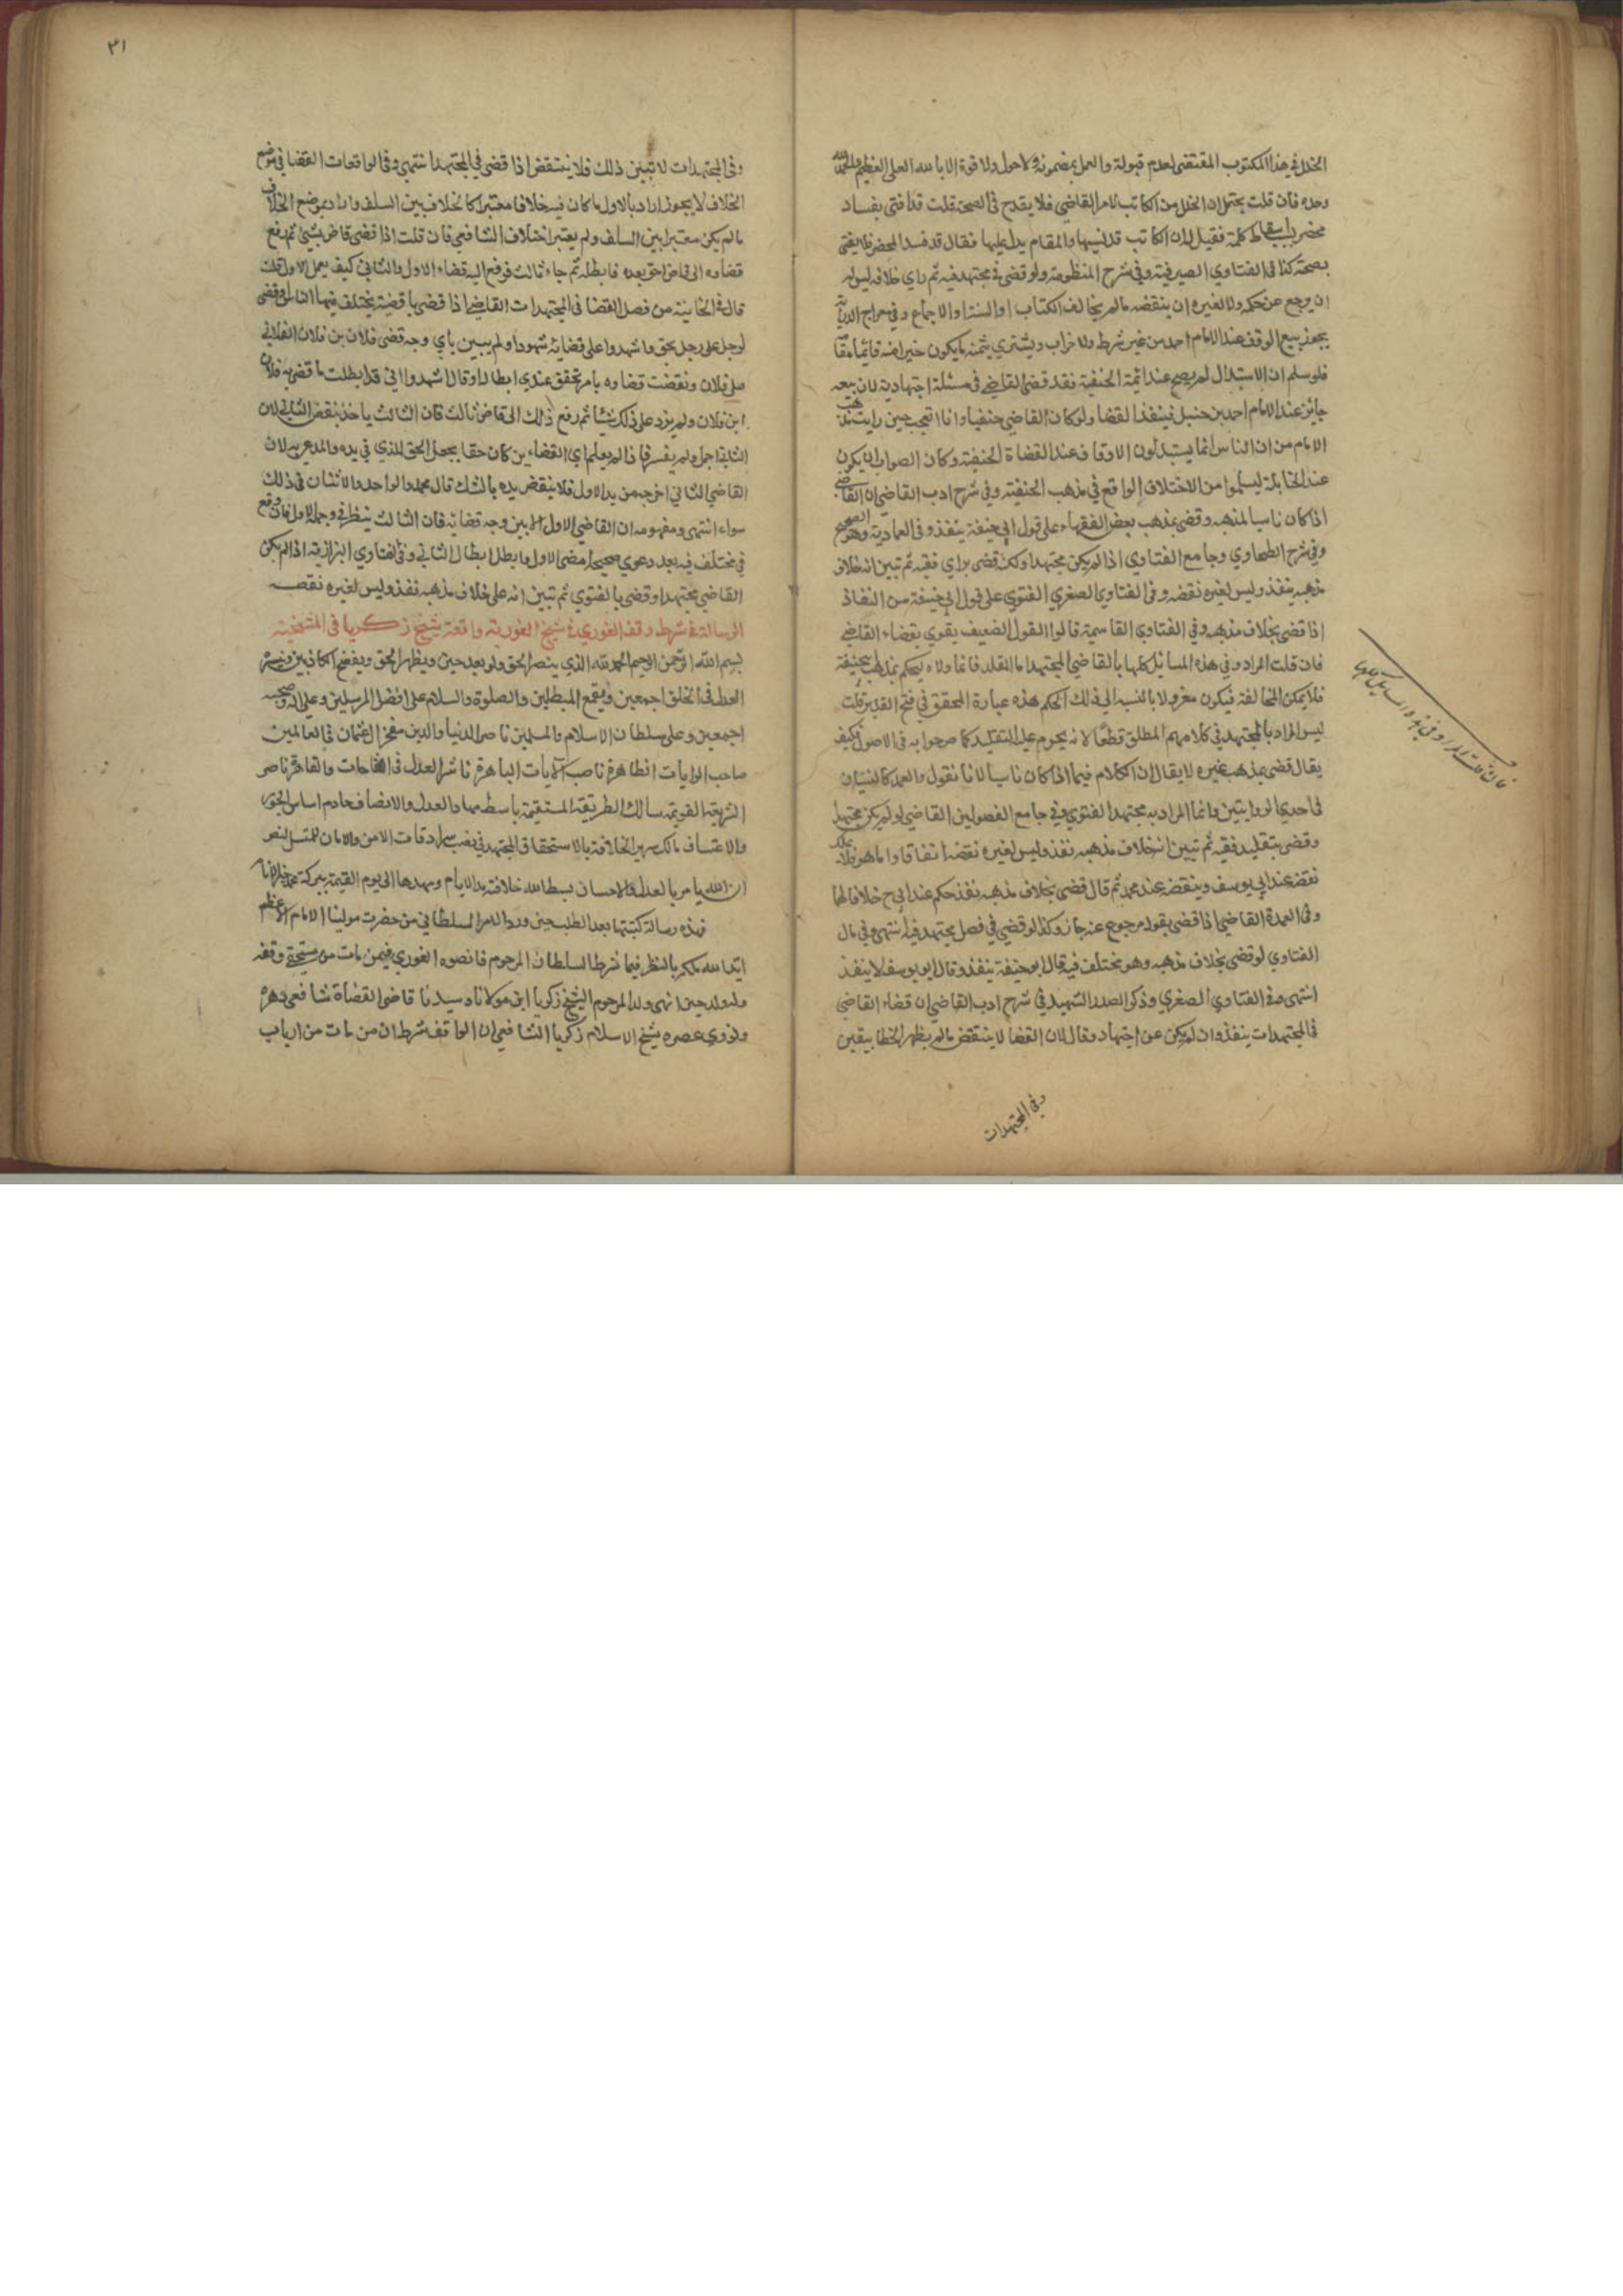 الخلل في هذا المكتوب المقتضى لعدم قبوله والعمل بمضمونه ولا حول ولا قوة الا بالله العلى العظيم والحمد لله
وحده فان قلت يحتمل ان الخلل من الكاتب لا من القاضي فلا يقدح في الصحة قلت قد افتى بفساد
محضر باسقاط كلمة فقيل له ان الكاتب قد نسيها والمقام يدل عليها فقال قد فسد المحضر فلا يفتى
بصحته كذا في الفتاوي الصيرفية وفي شرح المنظومة ولو قضى في مجتهد فيه ثم راي خلافه ليس له
ان يرجع عن حكمه ولا لغيره ان ينقضه مالم يخالف الكتاب او السنة او الاجماع وفي معراج الدراية
يجوز بيع الوقف عند الامام احمد من غير شرط ولا خراب ويشتري بثمنه ما يكون خيرا منه قائما مقامه
فلو سلم ان الاستبدال لم يصح عند ائمة الحنفية نقد قضى القاضي في مسئلة اجتهادية لان بيعه
جايز عند الامام احمد بن حنبل فينفذ القضا ولو كان القاضي حنفيا وانا اتعجب حين رايت مذهب
الامام من ان الناس انما يستبدلون الاوقاف عند القضاة الحنفية وكان الصواب ان يكون
عند الحنابلة ليسلموا من الاختلاف الواقع في مذهب الحنفية وفي شرح ادب القاضي ان القاضي
اذا كان ناسيا لمذهبه وقضى بمذهب بعض الفقهاء على قول ابي حنيفة ينفذ وفي العمادية وهو الصحيح
وفي شرح الطحاوي وجامع الفتاوي اذا لم يكن مجتهدا ولكنه قضى براي فقيه ثم تبين انه خلاف
مذهبه ينفذ وليس لغيره نقضه وفي الفتاوي الصغري الفتوي على قول ابي حنيفة من النفاذ
اذا قضى بخلاف مذهبه وفي الفتاوي القاسمية قالوا القول الضعيف يقوي بقضاء القاضي
فان قلت المراد في هذه المسائل كلها بالقاضي المجتهد اما المقلد فانما ولاه ليحكم بمذهب ابي حنيفة
فلا يمكن المخالفة فيكون معزولا بالنسبة الى ذلك الحكم هذه عبارة المحقق في فتح القدير قلت
ليس المراد بالمجتهد في كلامهم المطلق قطعا لانه يحرم عليه التقليد كما صرحوا به في الاصول فكيف
يقال قضى بمذهب غيره لا يقال ان الكلام فيما اذا كان ناسيا لانا نقول والعمد كالنسيان
في احدي الروايتين وانما المراد به مجتهد الفتوي وفي جامع الفصولين القاضي لو لم يكن مجتهدا
وقضى بتقليد فقيه ثم تبين انه خلاف مذهبه نفذ وليس لغيره نقضه اتفاقا واما هو فلا يملك
نقضه عند ابي يوسف وينقضه عند محمد ثم قال قضى بخلاف مذهبه نفذ حكمه عند ابي ح خلافا لهما
وفي العمدة القاضي اذا قضى بقول مرجوع عنه جاز وكذا لو قضى في فصل مجتهد فيه انتهى وفي مال
الفتاوي لو قضى بخلاف مذهبه وهو مختلف فيه قال ابو حنيفة ينفذ وقال ابو يوسف لا ينفذ
انتهى وفي الفتاوي الصغري وذكر الصدر الشهيد في شرح ادب القاضي ان قضاء القاضي
في المجتهدات ينفذ وان لم يكن عن اجتهاد وقال لان القضا لا ينتقض مالم يظهر الخطا بيقين
وفي المجتهدات
فان قلت المراد في هذه المسائل كلها
٣١
وفي المجتهدات لا تبين ذلك فلا ينتقض اذا قضى في المجتهد انتهى وفي الواقعات القضا في موضع
الخلاف لا يجوز اراد بالاول ما كان فيه خلافا معتبرا كالخلاف بين السلف واراد بموضع الخلاف
مالم يكن معتبرا بين السلف ولم يعتبر اختلاف الشافعي فان قلت اذا قضى قاض بشئ ثم رفع
قضاوه الى قاض اخر بعده فابطله ثم جاء ثالث فرفع اليه قضاء الاول والثاني كيف يعمل الاول قلت
قال في الخانية من فصل القضا في المجتهدات القاضي اذا قضى باقضية يختلف فيها الناس او قضى
لرجل على رجل بحق واشهدوا على قضائه شهودا ولم يبين باي وجه قضى فلان بن فلان الفلاني
على فلان ونقضت قضاوه بامر تحقق عندي ابطالا وقال اشهدوا اني قد ابطلت ما قضى به فلان
ابن فلان ولم يزد على ذلك شيا ثم رفع ذلك الى قاض ثالث فان الثالث ياخذ بنقض الثاني لان
الثاني اجمل ولم يفسر فاذا لم يعلم اي القضاءين كان حقا يجعل الحق للذي في يده والمدعى به لان
القاضي الثاني اخرجه من يد الاول فلا ينقض يده بالشك قال محمد والواحد والاثنان في ذلك
سواء انتهى ومفهومه ان القاضي الاول اذا بين وجه قضائه فان الثالث ينظر في وجه الاول فان وقع
في مختلف فيه بعد دعوي صحيحة امضى الاول وابطل ابطال الثاني وفي الفتاوي البزازية اذا لم يكن
القاضي مجتهدا وقضى بالفتوي ثم تبين انه على خلاف مذهبه نفذ وليس لغيره نقضه
الرسالة في شرط وقف الغوري في شيخ الغورية واقعة شيخ زكريا في المشيخية
بسم الله الرحمن الرحيم الحمد لله الذي ينصر الحق ولو بعد حين ويظهر المحق ويفضح الكاذبين وينشر
العدل في الخلق اجمعين ويقمع المبطلين والصلوة والسلام على افضل المرسلين وعلى اله وصحبه
اجمعين وعلى سلطان الاسلام والمسلمين ناصر الدنيا والدين مفخر ال عثمان في العالمين
صاحب الرايات الظاهرة ناصب الايات الباهرة ناشر العدل في الخاجات والقاهرة ناصر
الشريعة القويمة سالك الطريقة المستقيمة باسط مهاد العدل والانصاف هادم اساس الجور
والاعتساف مالك سرير الخلافة بالاستحقاق المجتهد في نصب سرادقات الامن والامان الممتثل لنص
ان الله يامر بالعدل والاحسان بسط الله خلافته بد الايام ومهدها الى يوم القيمة ببركة محمد خير الانام
فهذه رسالة كتبتها بعد الطلب حين ورد الامر السلطاني من حضرت مولينا الامام الاعظم
ايد الله ملكه بالنظر فيما شرط السلطان المرحوم قانصوه الغوري فيمن مات من مستحقي وقفه
وله ولد حين انهى ولد المرحوم الشيخ زكريا ابن مولانا وسيدنا قاضي القضاة شافعي دهره
ونووي عصره شيخ الاسلام زكريا الشافعي ان الواقف شرط ان من مات من ارباب